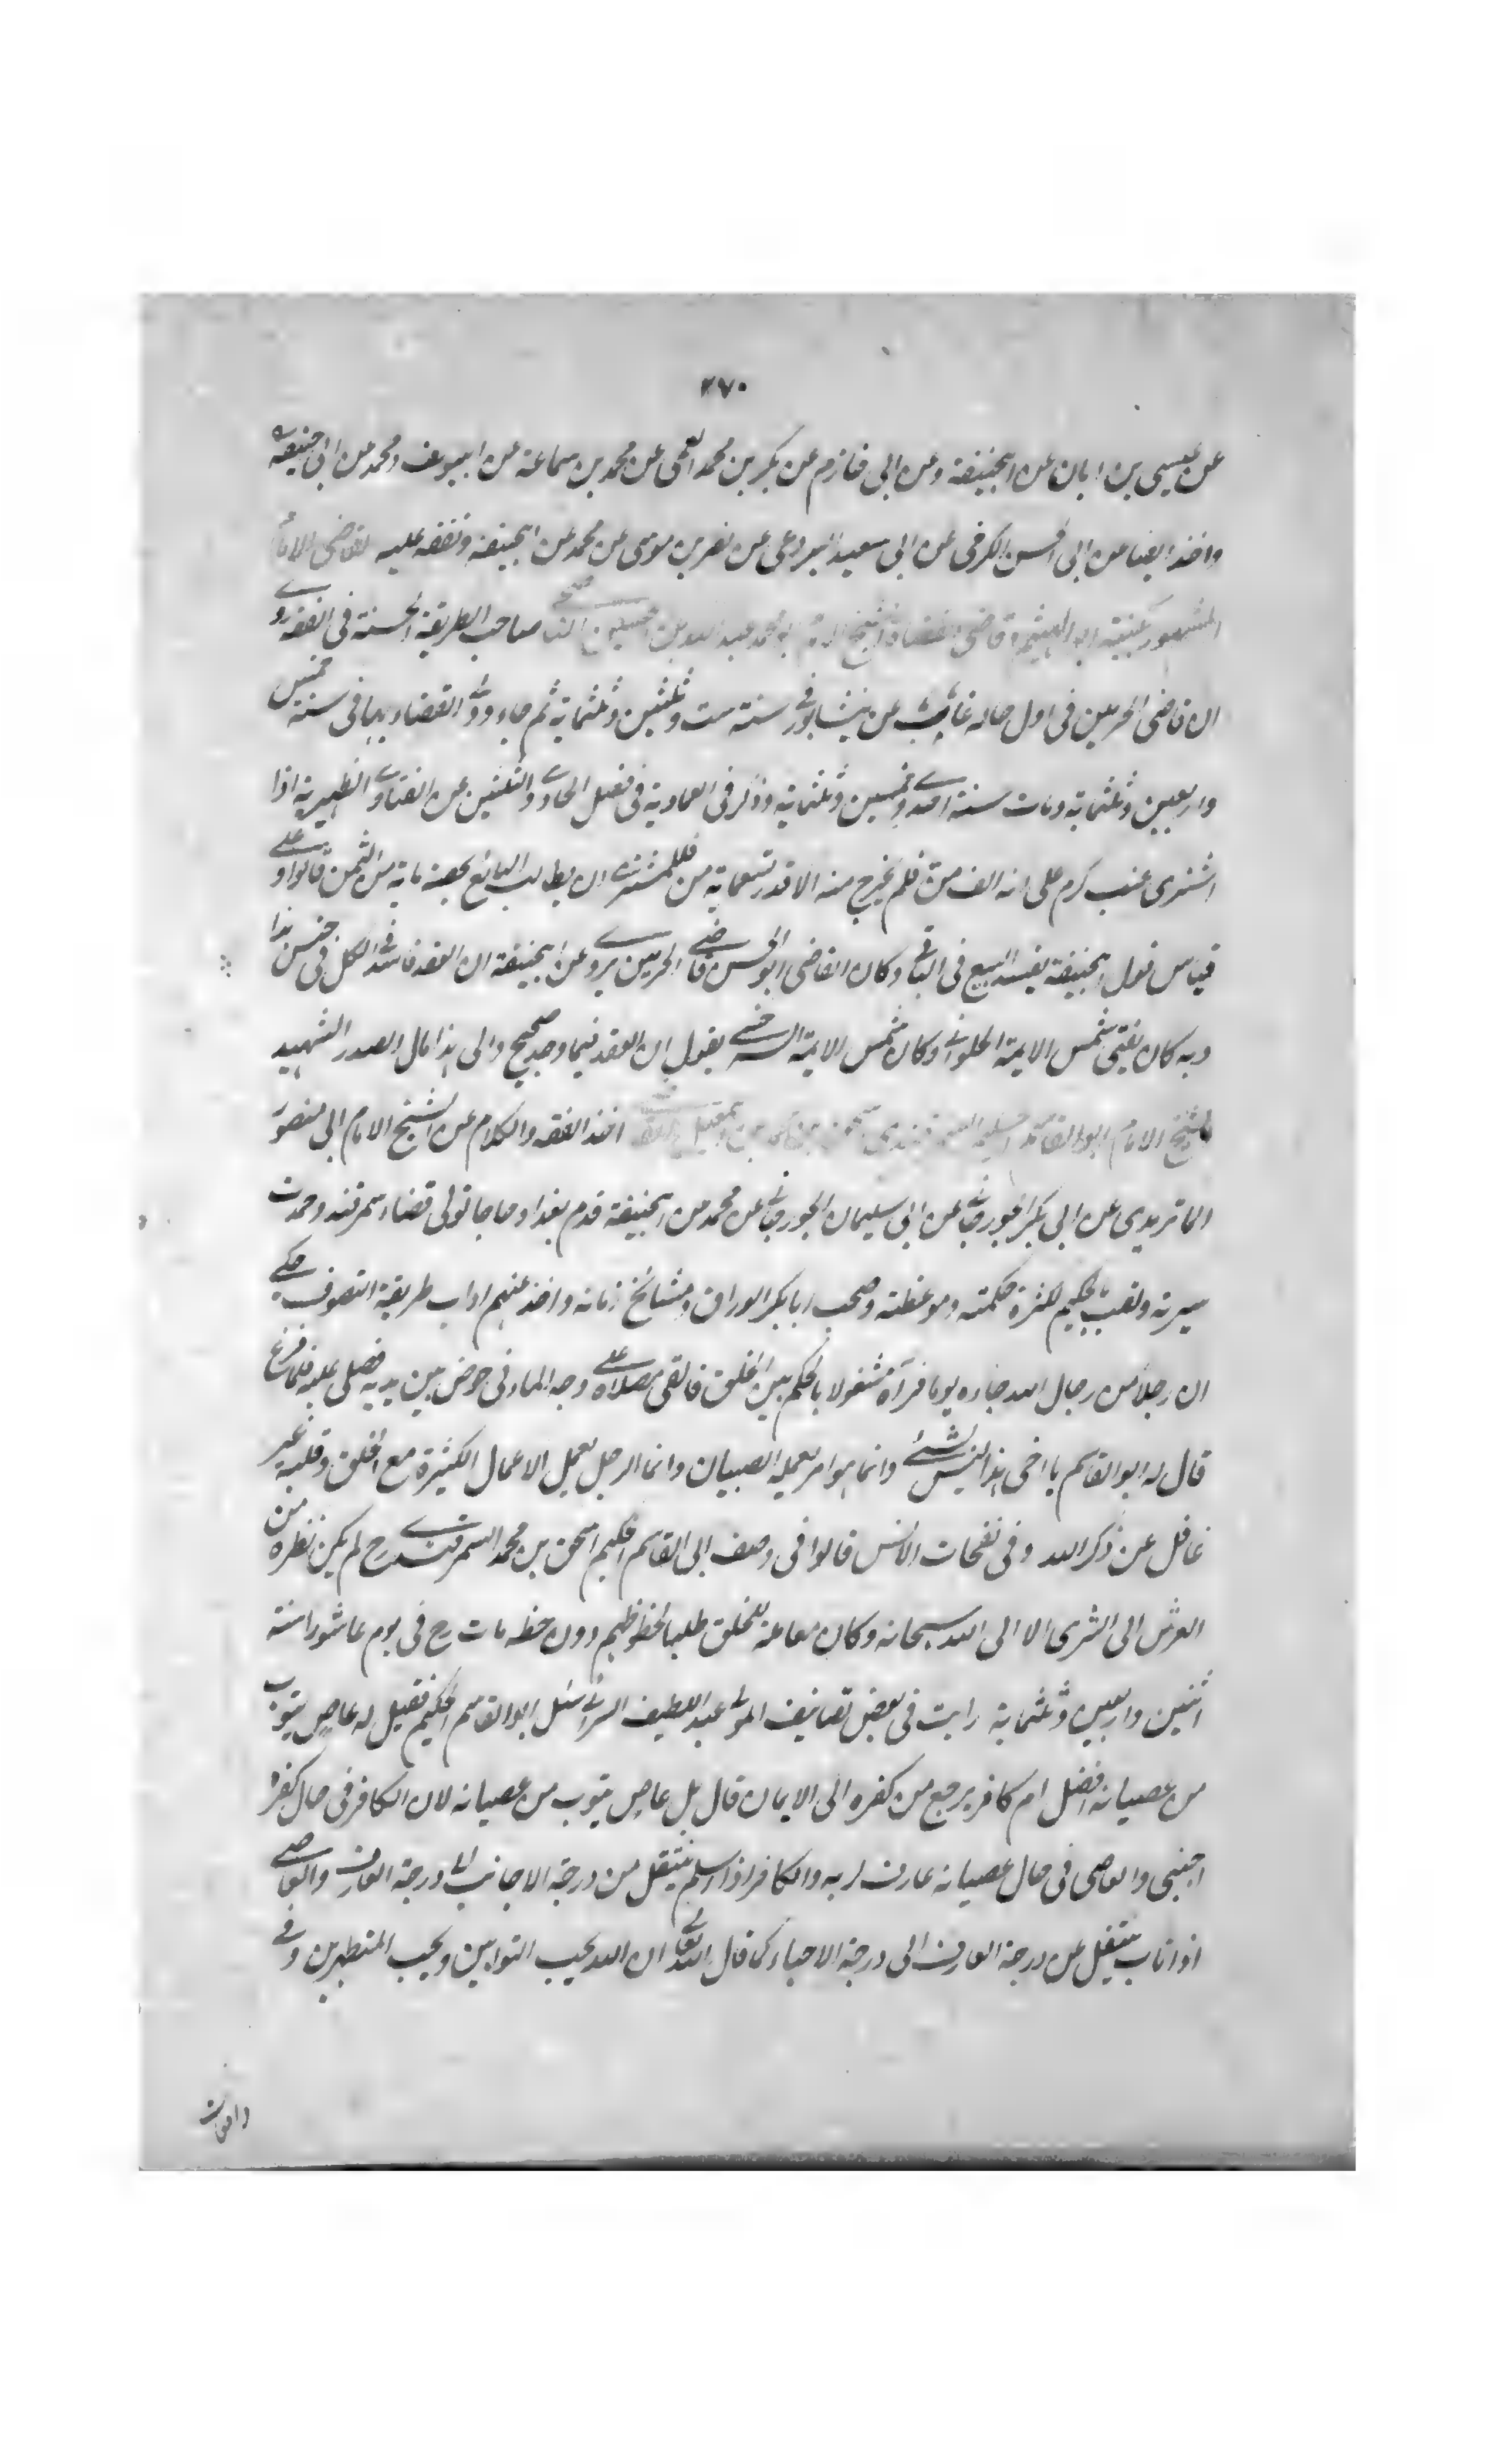 ٢٧٠
عن عيسى بن ابان عن ابيحنيفة وعن ابى خازم عن بكر بن محمد العمى عن محمد بن سماعة عن ابيوسف ومحمد عن ابى حنيفة
واخذ ايضا عن ابى الحسن الكرخى عن ابى سعيد البردعى عن نصر بن موسى عن محمد عن ابيحنيفة وتفقه عليه القاضى الامام
المشهور بكنيته ابو الهيثم وقاضى القضاة الشيخ الامام ابو محمد عبد الله بن الحسين الناصحى صاحب الطريقة الحسنة فى الفقه روى
ان قاضى الحرمين فى اول حاله غاب عن نيشابور فى سنة ست وثلثين وثلثماية ثم جاء وولى القضاء بها فى سنة خمس
واربعين وثلثماية ومات سنة احدى وخمسين وثلثماية وذكر فى العمادية فى فصل الحادى والثلثين عن الفتاوى الظهيرية اذا
اشترى عنب كرم على انه الف من فلم يخرج منه الا قدر تسعماية من فللمشترى ان يطالب البائع بحصة ماية من الثمن قالوا وعلى
قياس قول ابيحنيفة يفسد البيع فى الباقى وكان القاضى ابو الحسن قاضى الحرمين يروى عن ابيحنيفة ان العقد فاسد فى الكل فى جنس هذا
وبه كان يفتى شمس الايمة الحلوانى وكان شمس الايمة السرخسى يقول ان العقد فيما وجد صحيح والى هذا مال الصدر الشهيد
الشيخ الامام ابو القاسم الحكيم السمرقندى اسحق بن محمد بن اسمعيل اخذ الفقه والكلام عن الشيخ الامام ابى منصور
الماتريدى عن ابى بكر الجوزجانى عن ابى سليمان الجوزجانى عن محمد عن ابيحنيفة قدم بغداد حاجا تولى قضاء سمرقند وحمدت
سيرته ولقب بالحكيم لكثرة حكمته وموعظته وصحب ابا بكر الوراق ومشائخ زمانه واخذ عنهم اداب طريقة التصوف حكى
ان رجلا من رجال الله جاءه يوما فرآه مشغولا بالحكم بين الخلق فالقى مصلاه على وجه الماء فى حوض بين يديه فصلى عليه فلما فرغ
قال له ابو القاسم يا اخى هذا ليس بشئ وانما هو امر يعمله الصبيان وانما الرجل يعمل الاعمال الكثيرة مع الخلق وقلبه غير
غافل عن ذكر الله وفى نفحات الانس قالوا فى وصف ابى القاسم الحكيم اسحق بن محمد السمرقندى رح لم يكن نظره من
العرش الى الثرى الا الى الله سبحانه وكان معاملته للخلق طلبا لحظوظهم دون حظه مات رح فى يوم عاشورا سنة
اثنين واربعين وثلثماية رايت فى بعض تصانيف المولى عبد اللطيف سئل ابو القاسم الحكيم فقيل له عاص يتوب
من عصيانه افضل ام كافر يرجع من كفره الى الايمان قال بل عاص يتوب من عصيانه لان الكافر فى حال كفره
اجنبى والعاصى فى حال عصيانه عارف لربه والكافر اذا اسلم ينتقل من درجة الاجانب الى درجة العارف والعاصى
اذا تاب ينتقل عن درجة العارف الى درجة الاحباء كما قال الله تعالى ان الله يحب التوابين ويحب المتطهرين وفى